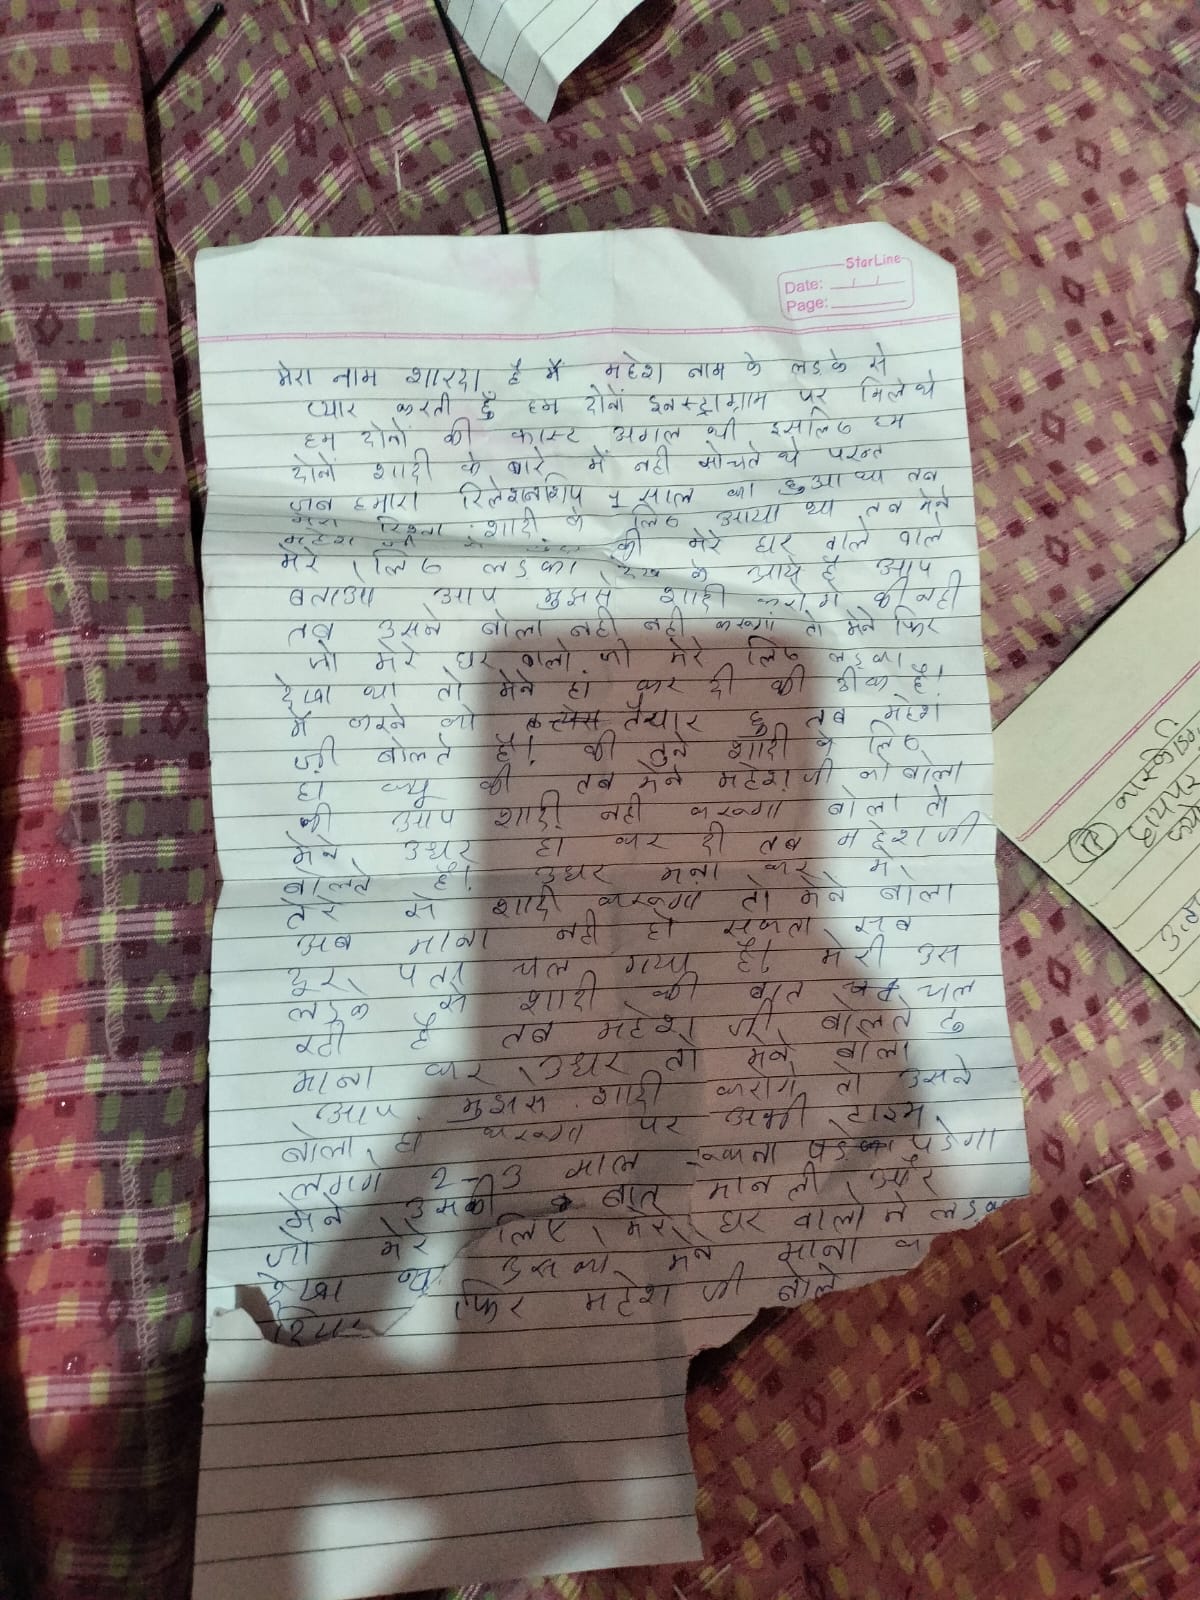 StarLine
Date:
Page:
मेरा नाम शारदा है में महेश नाम के लडके से
प्यार करती हुँ हम दोनों इनस्ट्राग्राम पर मिले थे
हम दोनों की कास्ट अगल थी इसलिए हम
दोनों शादी के बारे में नही सोचते थे परन्त
जब हमारा रिलेशनशिप 1 साल का हुआ था तब
मेरा रिश्ता शादी के लिए आया था तब मेने
की मेरे घर वाले वाले
मेरे लिए लडका देख के आये है आप
बताओ आप मुझसे शादी करोगे की नही
तब उसने बोला नही नही करूगा तो मेने फिर
जो मेरे घर वालो जो मेरे लिए लड़का
देखा था तो मेने हां कर दी की ठीक है।
में करने को तैयार हु तब महेश
जी बोलते है। की तुने शादी के लिए
हां क्यू की तब मेने महेश जी को बोला
की आप शादी नही करूगा बोला तो
मेने उधर हा कर दी तब महेश जी
बोलते है। उधर मना कर मे
तेरे से शादी करूगा तो मेने बोला
अब माना नही हो सकता सब
दूर पता चल गया है। मेरी उस
लड़के से शादी की बात चल
रही है तब महेश जी बोलते तु
माना कर उधर तो मेने बोला
आप मुझसे शादी करोगे तो उसने
बोला हां करूगा पर अभी टाइम
लगेगे 2-3 साल रूकना पडेगा
मेने उसकी बात मान ली और
जो मेरे लिए मेरे घर वालो ने
देखा था उस का मेने माना
दिया फिर महेश जी बोले